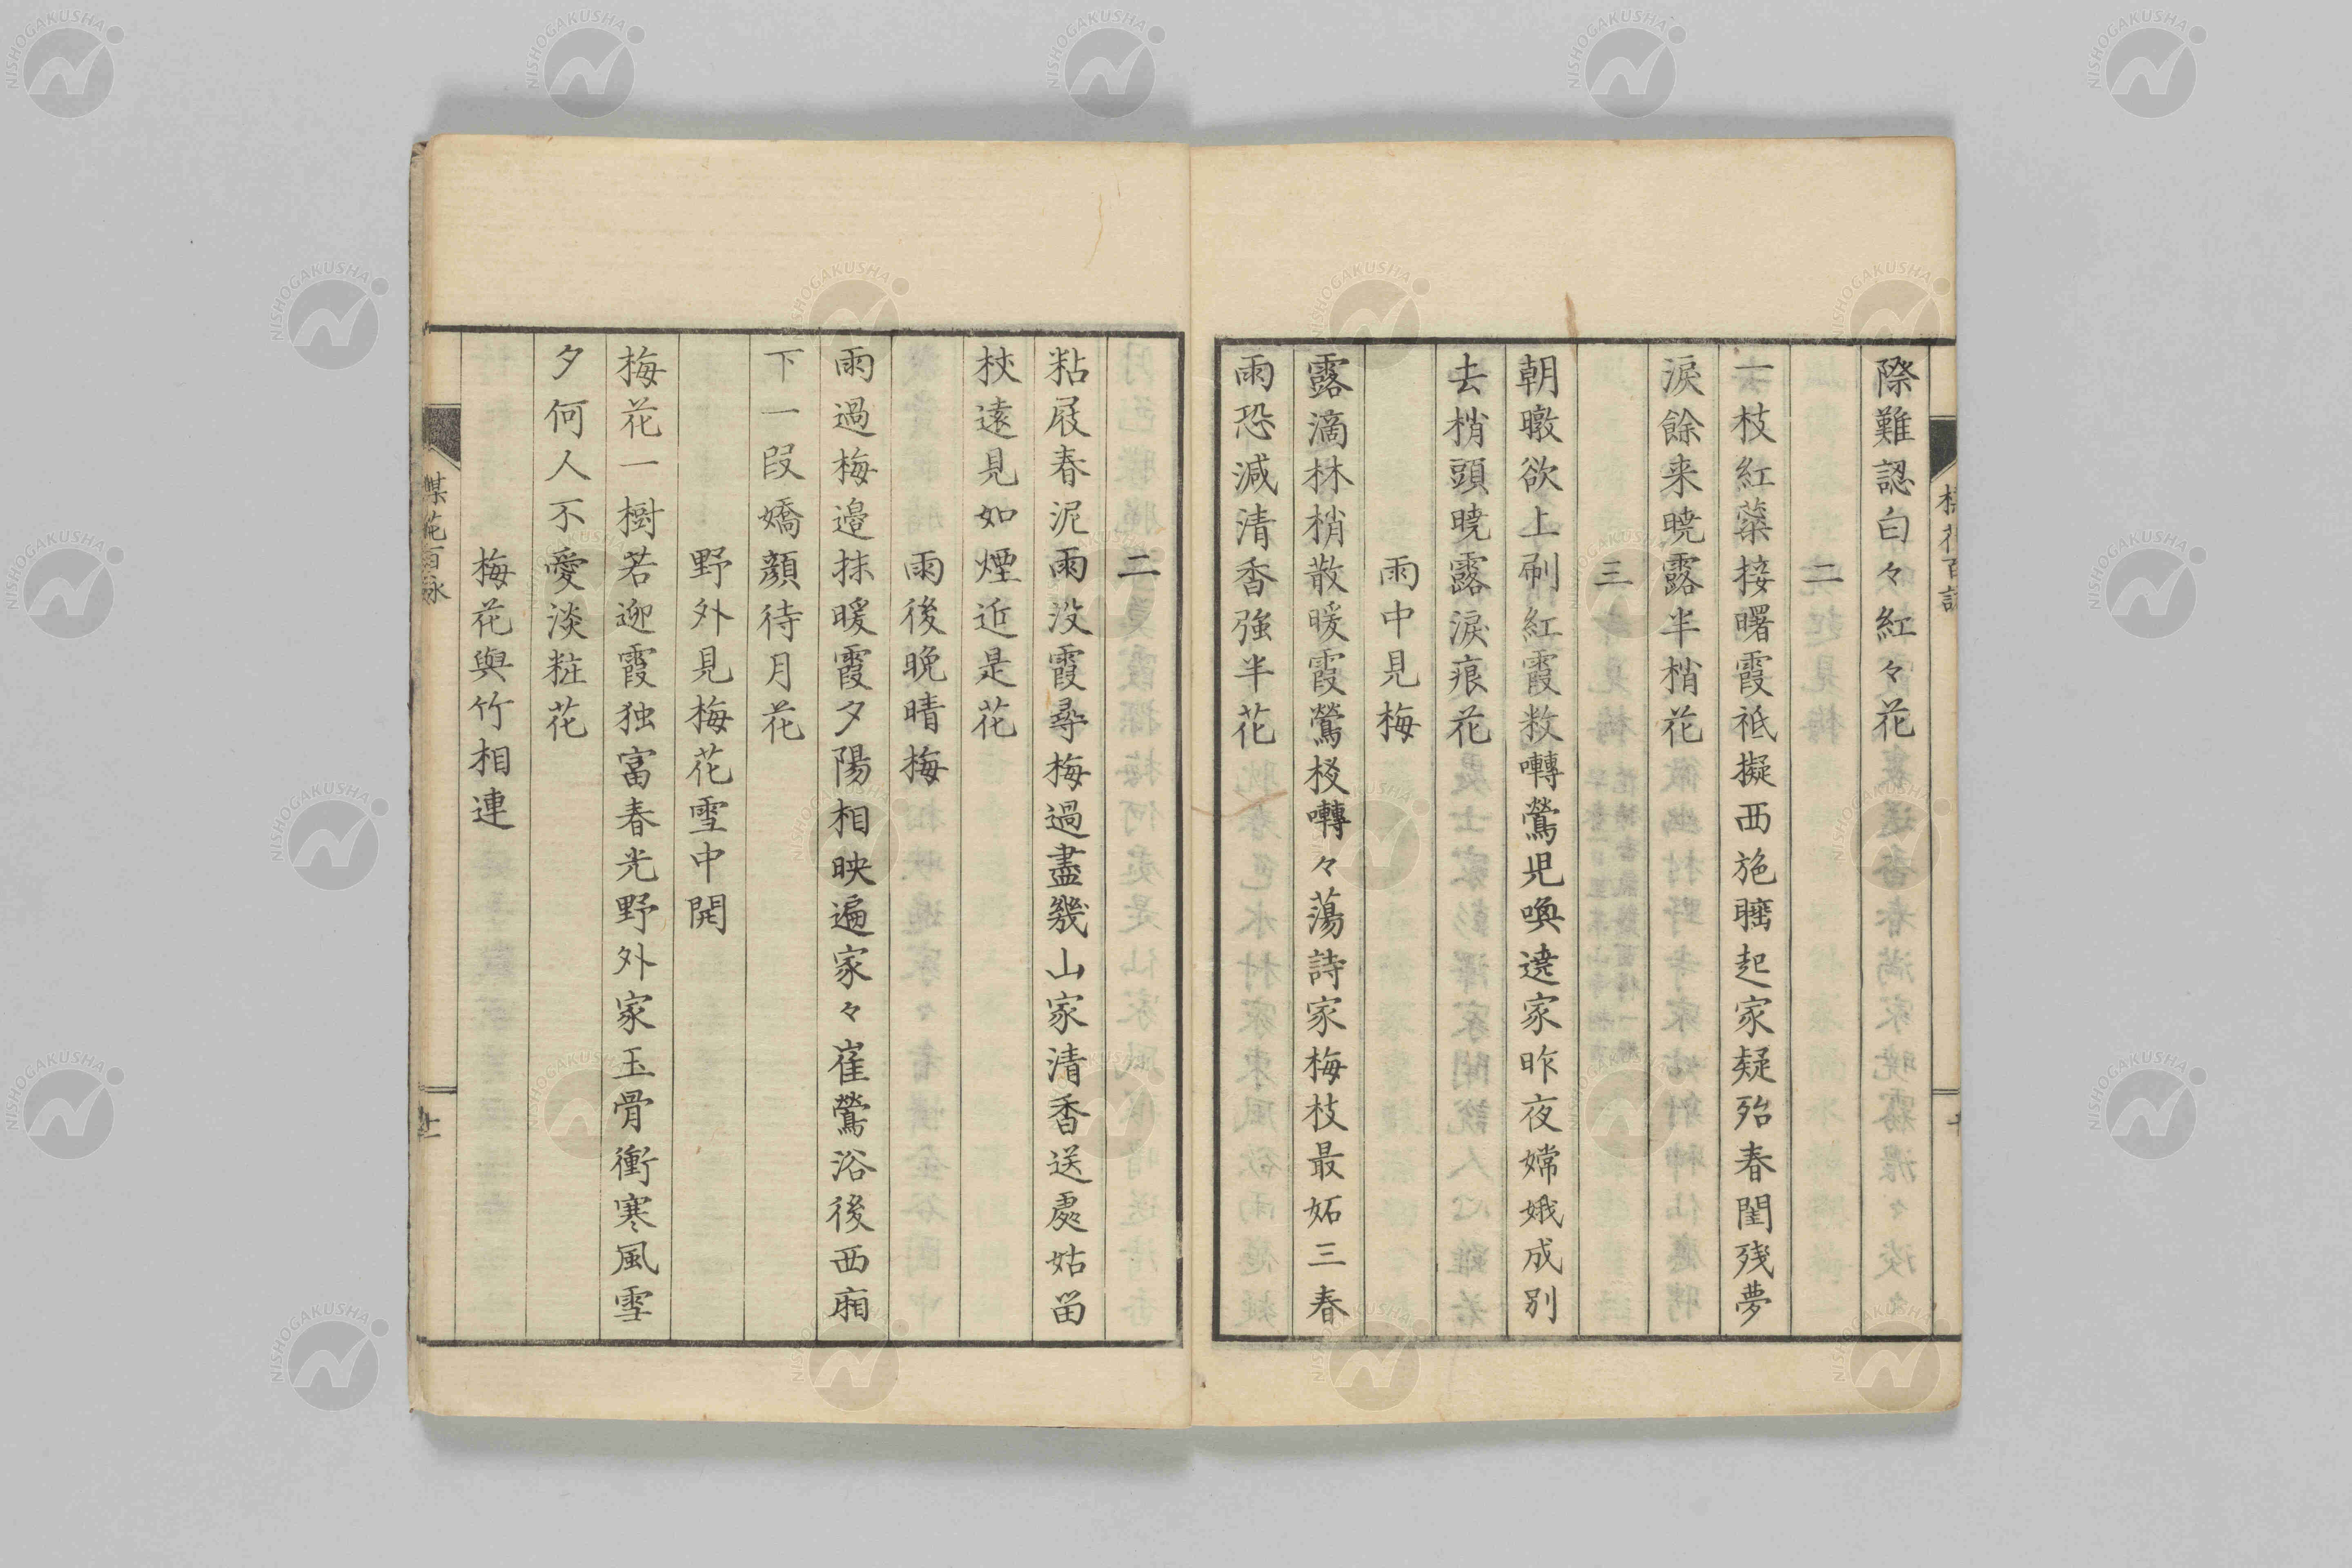 際難認白々紅々花
二
一枝紅蘂接曙霞祗擬西施睡起家疑殆春閨残夢
涙餘来暁露半梢花
三
朝暾欲上刷紅霞数囀鶯児喚遶家昨夜嫦娥成別
去梢頭暁露涙痕花
雨中見梅
露滴林梢散暖霞鶯梭囀々蕩詩家梅枝最妬三春
雨恐減清香強半花
二
粘屐春泥雨没霞尋梅過盡幾山家清香送處姑畄
杖遠見如煙近是花
雨後晩晴梅
雨過梅邉抹暖霞夕陽相映遍家々崔鶯浴後西廂
下一段嬌顔待月花
野外見梅花雪中開
梅花一樹若迎霞独富春光野外家玉骨衝寒風雪
夕何人不愛淡粧花
梅花與竹相連
楳花百詠
十一
NISHOGAKUSHA